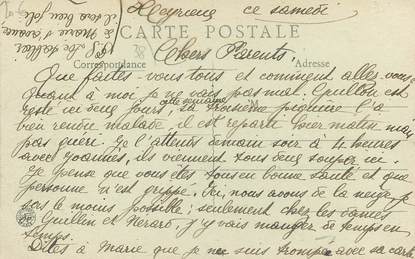 Meyrieu ce samedi
CARTE POSTALE
Chers Parents,
Correspondance Adresse
Que faites-vous tous et comment allez-vous
Quant à moi je ne vais pas mal. Guillin est
resté ici deux jours, cette semaine, la troisième piqûre l'a
bien rendu malade il est reparti hier matin mais
pas guéri. Je l'attends demain soir à 4 heures
avec Joannès, ils viennent tous deux souper ici.
Je pense que vous êtes tous en bonne santé et que
personne n'est grippé. Ici, nous avons de la neige je
sors le moins possible; seulement chez les dames
Guillin et Revard, j'y vais manger de temps en
temps.
Dites à Marie que je me suis trompée avec sa carte